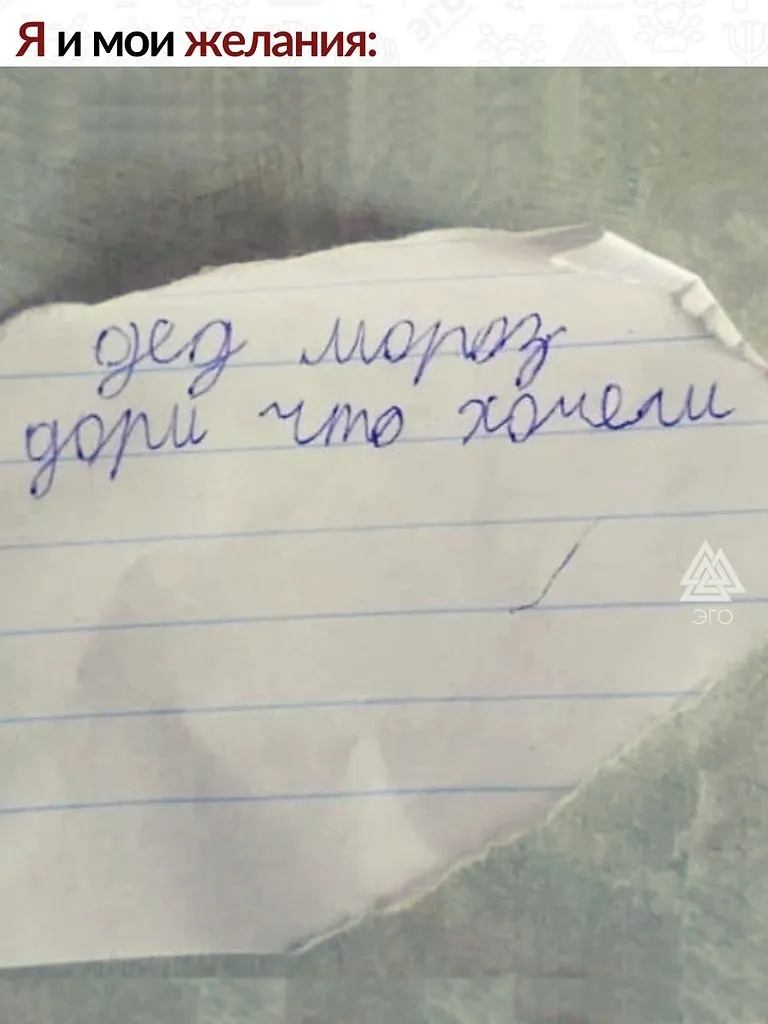 Я и мои желания:
дед мороз
дори что хочели
ЭГО